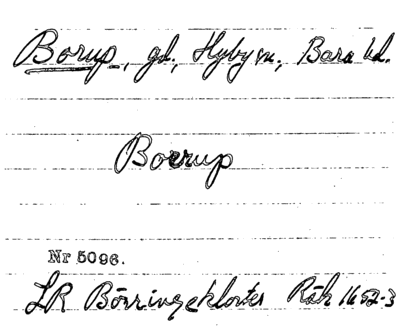 Borup, gd, Hyby sn, Bara hd.
Boerup
Nr 5096.
LR Börringekloster Räk 1652-3